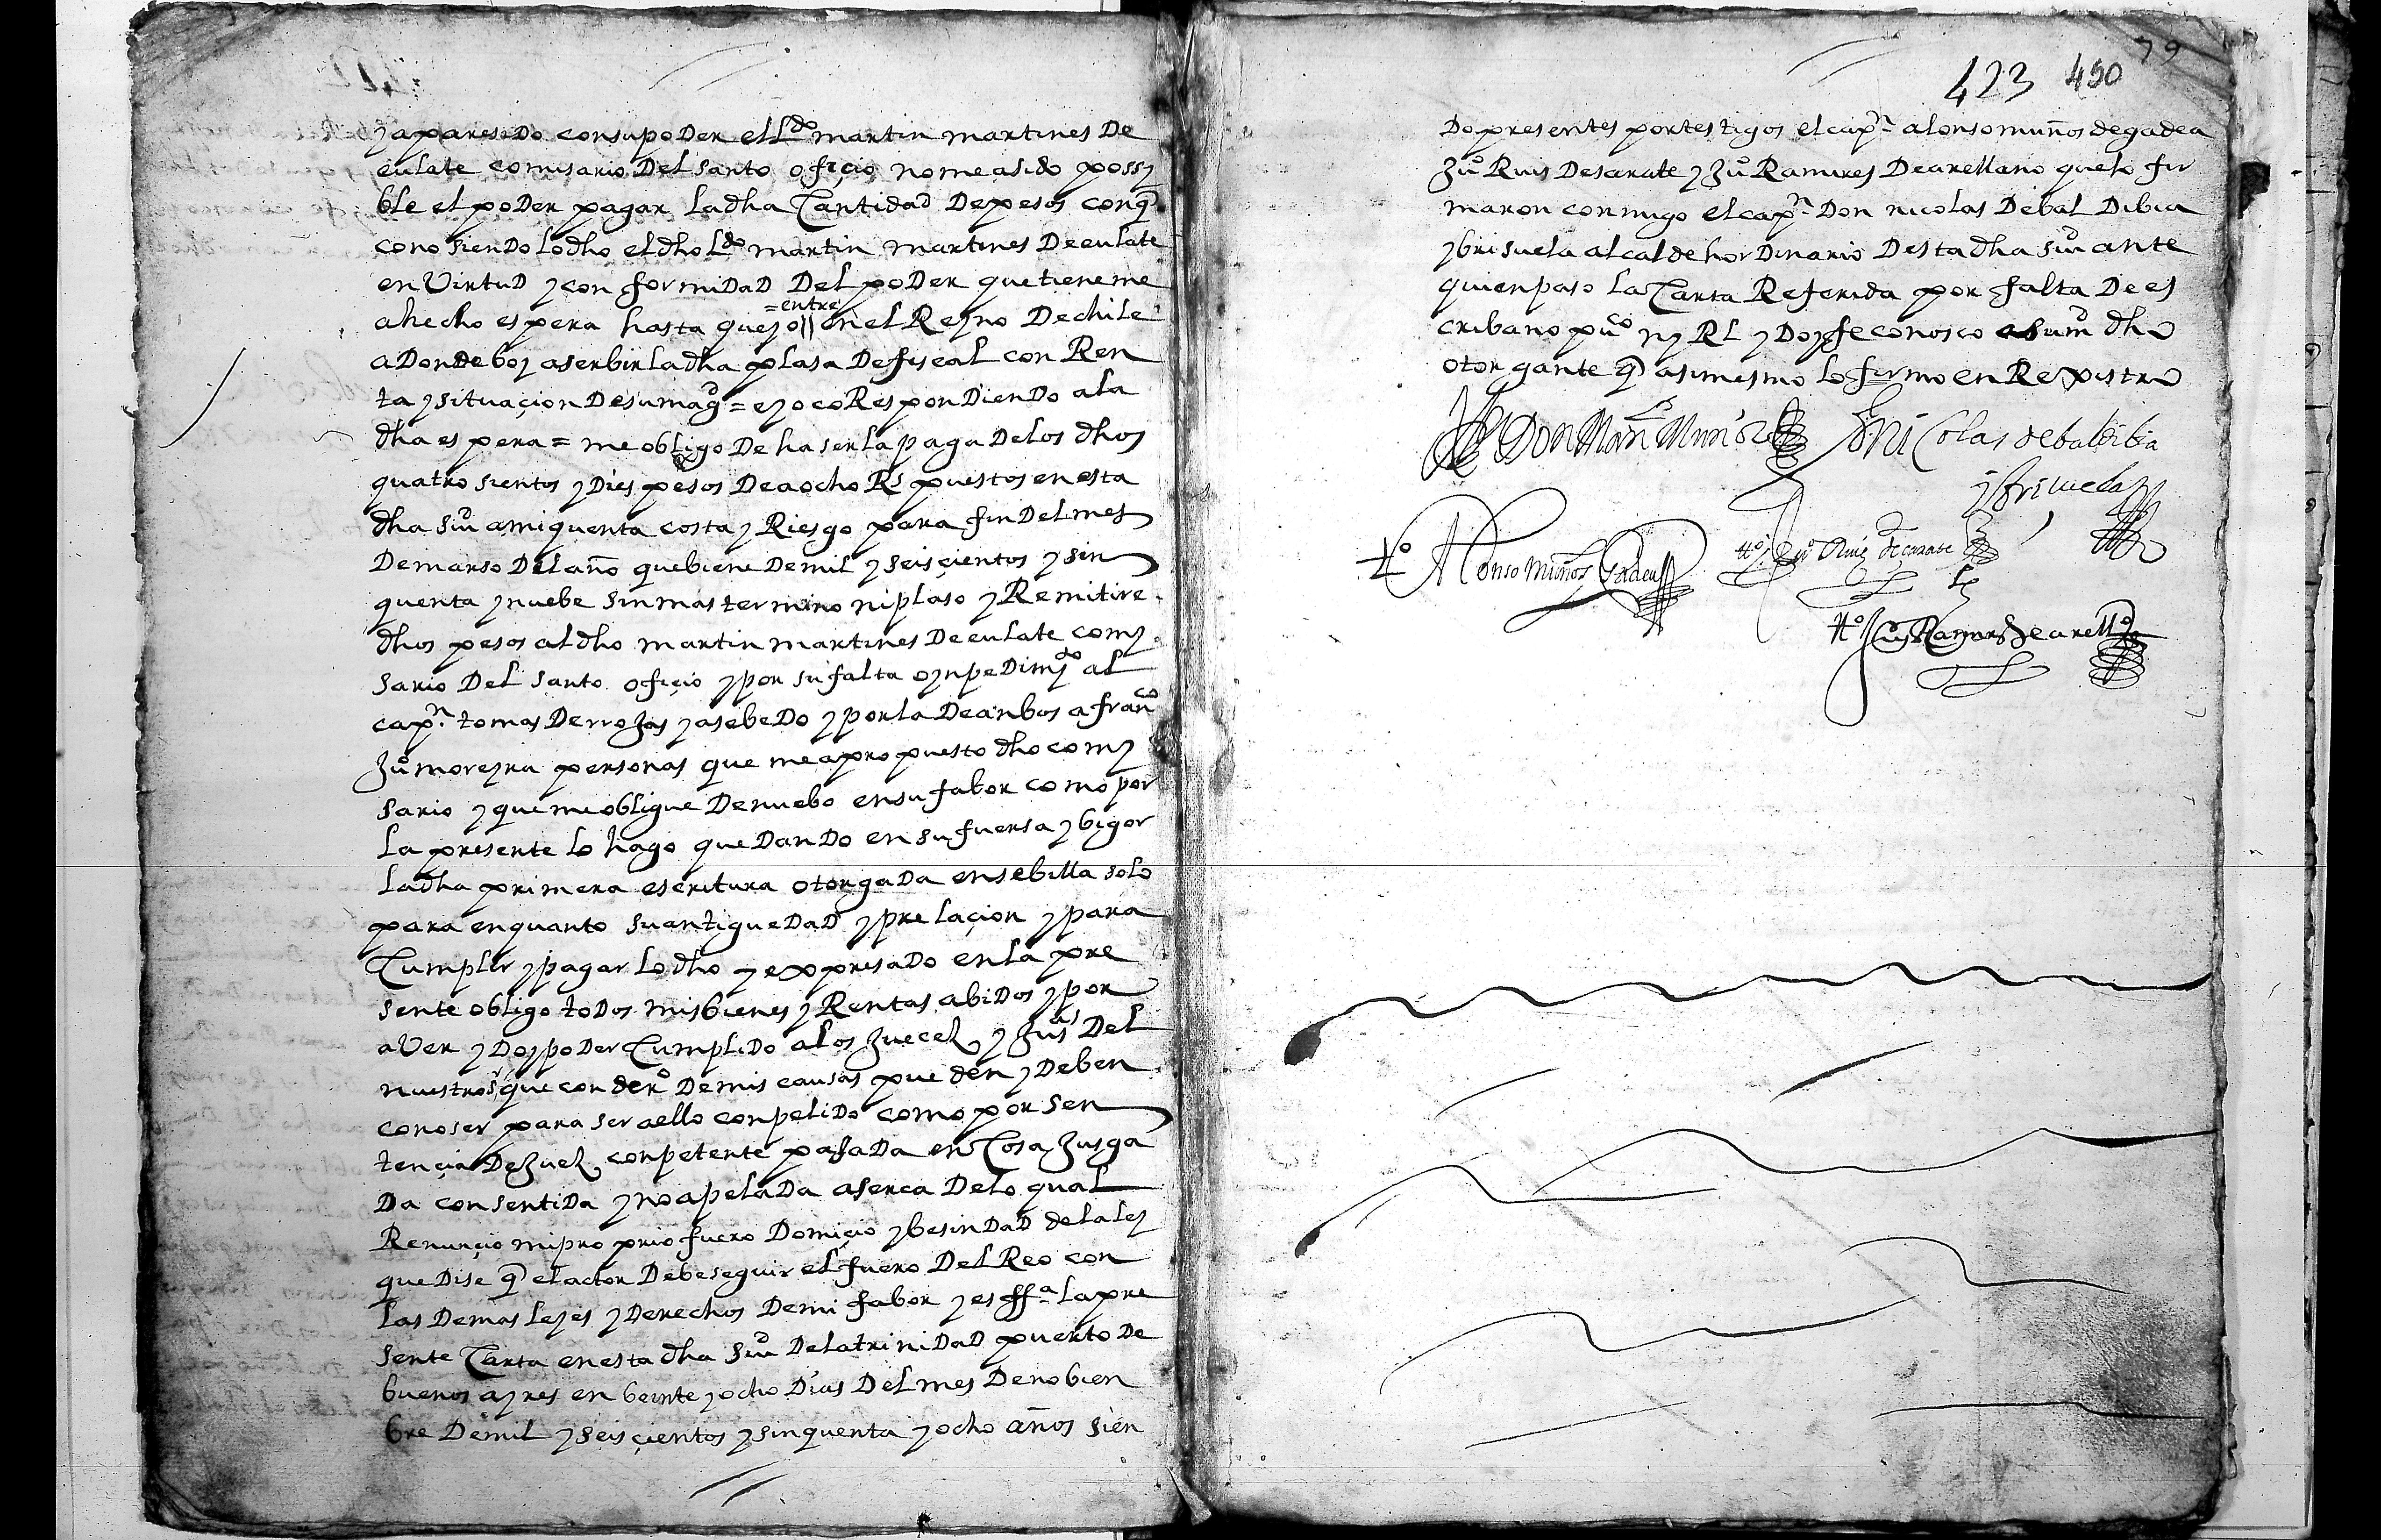 y aparesido con su poder el Ldo martin martines De
eulate comisario Del santo ofiçio no me a sido possy
ble el poder pagar la dha Cantidad De pesos con q
conosiendo lo dho el dho Ldo martin martines De eulate
en Virtud y conformidad Del poder que tiene me
a hecho espera hasta que yo =entre en el Reyno De chile
a Donde boy a serbir la dha plasa De fiscal con Ren
ta y situaçion De su magd = e yo coRespondiendo a la
dha espera = me obligo De haser la paga De los dhos
quatrosientos y Dies pesos De a ocho Rs puestos en esta
dha siud a mi quenta costa y Riesgo para fin Del mes
De marso Del año que biene De mil y seisçientos y sin
quenta y nuebe sin mas termino ni plaso y Remitire
dhos pesos al dho martin martines De eulate comy
sario Del santo ofiçio y por su falta o ynpedimto al
capn tomas De rrojas y asebedo y por la De anbos a franco
Juo moreyra personas que me a propuesto dho comy
sario y que me obligue De nuebo en su fabor como por
la presente lo hago quedando en su fuersa y bigor
la dha primera escritura otorgada en sebilla solo
para en quanto su antiguedad y prelaçion y para
Cumplir y pagar lo dho y expresado en la pre
sente obligo todos mis bienes y Rentas abidos y por
aVer y Doy poder Cumplido a los Jueces y Jusas Del
nuestro sr que con dero De mis causas pueden y Deben
conoser para ser a ello conpelido como por sen
tençia De Juez conpetente pasada en Cosa Jusga
da consentida y no apelada aserca De lo qual
Renunçio mi proprio fuero Domiçio y besindad de la ley
que Dise q el actor Debe seguir el fuero Del Reo con
las Demas leyes y Derechos De mi fabor y es ffa la pre
sente Carta en esta dha siud De la trinidad puerto De
buenos ayres en beinte y ocho Dias Del mes De nobien
bre De mil y seisçientos y sinquenta y ocho años sien
423 450 79
Do presentes por testigos el capn alonso muños de gadea
Juo Ruis De sarate y Juo Ramires De arellano que lo fir
maron conmigo el capn Don nicolas De bal Dibia
y brisuela alcalde hordinario Desta dha siud ante
quien paso la Carta Referida por falta De es
cribano puco ny Rl y Doy fe conosco a su md dho
otorgante q asimesmo lo firmo en Rexistro
Don Manl Muñoz Don Nicolas de baldibia
y brisuela
to Alonso Muños Gadea tto Juo Ruiz de çarate
tto Juo Ramires de arello